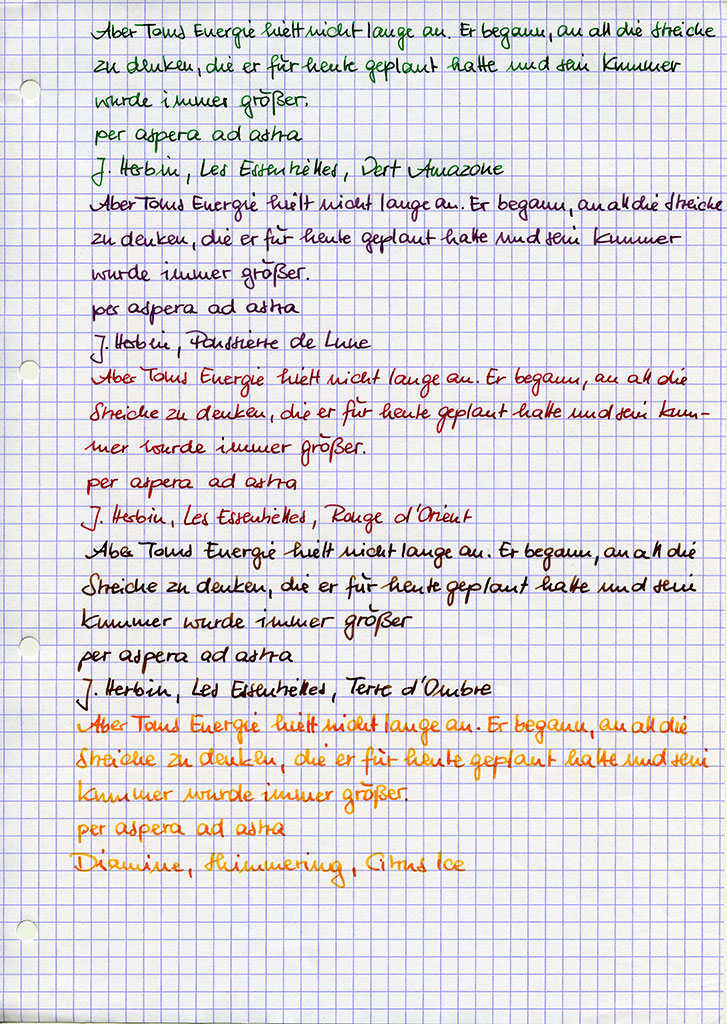 Aber Toms Energie hielt nicht lange an. Er begann, an all die Streiche
zu denken, die er für heute geplant hatte und sein Kummer
wurde immer größer.
per aspera ad astra
J. Herbin, Les Essentielles, Vert Amazone
Aber Toms Energie hielt nicht lange an. Er begann, an all die Streiche
zu denken, die er für heute geplant hatte und sein Kummer
wurde immer größer.
per aspera ad astra
J. Herbin, Poussierre de Lune
Aber Toms Energie hielt nicht lange an. Er begann, an all die
Streiche zu denken, die er für heute geplant hatte und sein Kum-
mer wurde immer größer.
per aspera ad astra
J. Herbin, Les Essentielles, Rouge d'Orient
Aber Toms Energie hielt nicht lange an. Er begann, an all die
Streiche zu denken, die er für heute geplant hatte und sein
Kummer wurde immer größer
per aspera ad astra
J. Herbin, Les Essentielles, Terre d'Ombre
Aber Toms Energie hielt nicht lange an. Er begann, an all die
Streiche zu denken, die er für heute geplant hatte und sein
Kummer wurde immer größer.
per aspera ad astra
Diamine, Shimmering, Citrus Ice